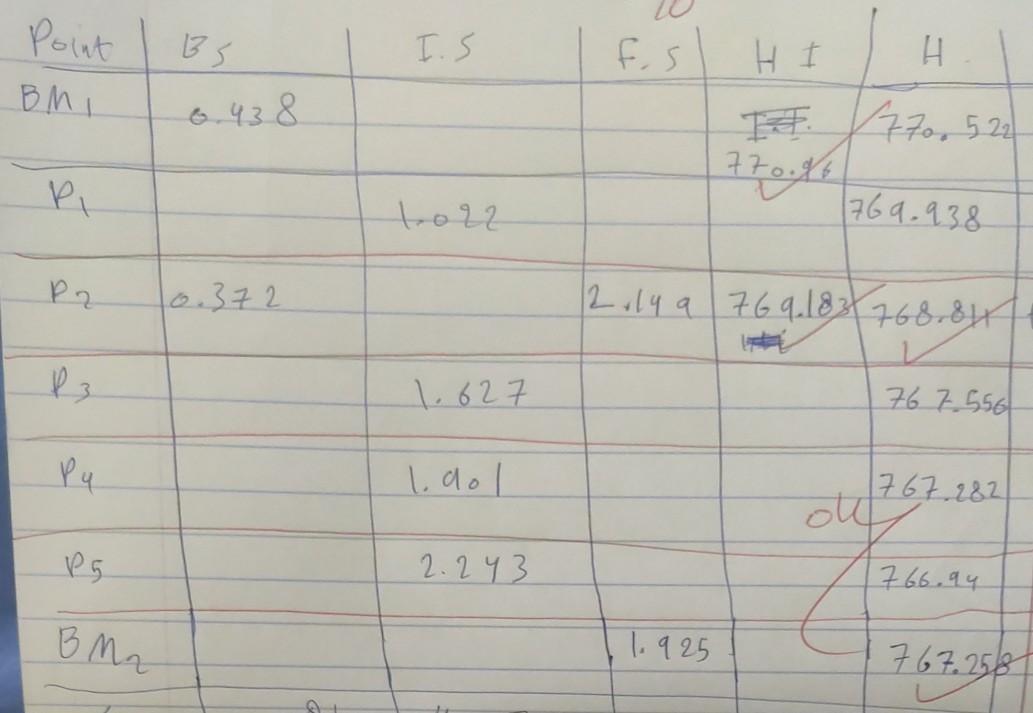 10
Point BS I.S F.S H I H
BM1 0.438 770.96 770.522
P1 1.022 769.938
P2 0.372 2.149 769.183 768.811
P3 1.627 767.556
P4 1.901 767.282
ok
P5 2.243 766.94
BM2 1.925 767.258